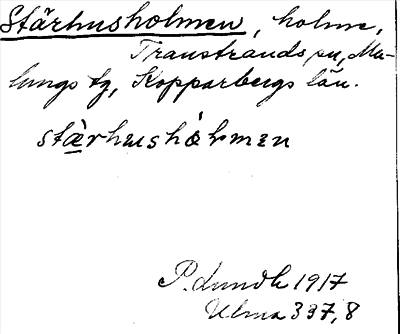 Stärhusholmen, holme,
Transtrands sn, Ma-
lungs tg, Kopparbergs län.
stæ̀rhushólmen
P. Lundh 1917
Ulma 337,8